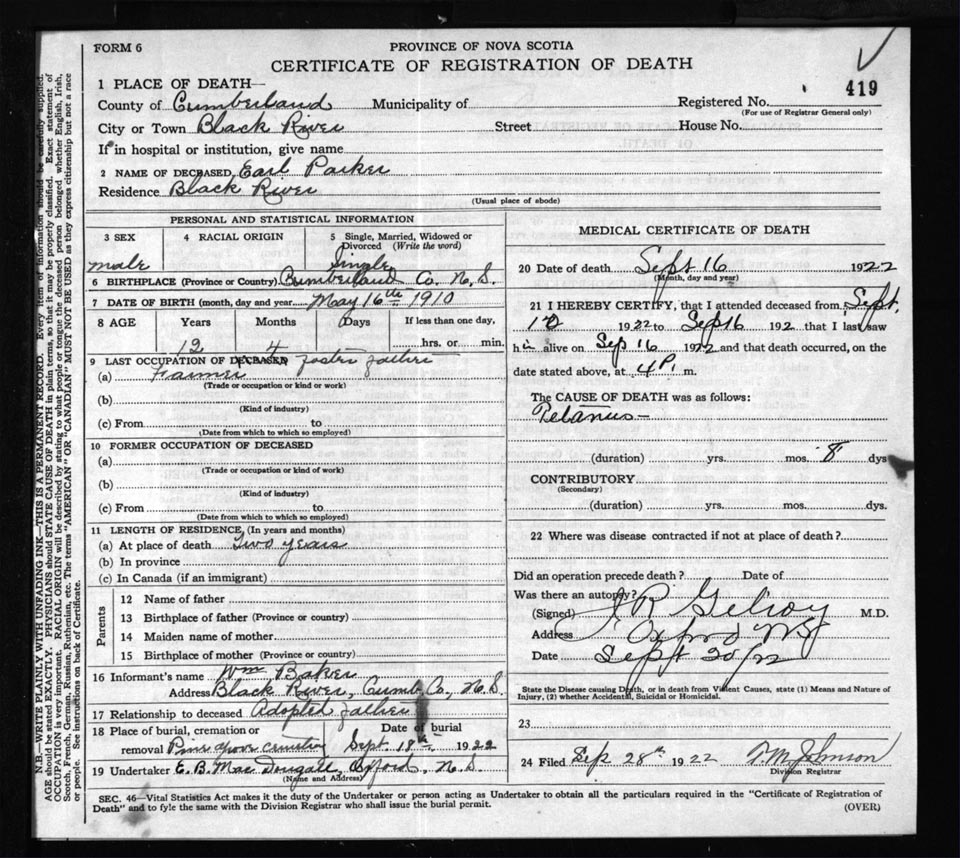 FORM 6
PROVINCE OF NOVA SCOTIA
CERTIFICATE OF REGISTRATION OF DEATH
419
1 PLACE OF DEATH—
County of Cumberland Municipality of Registered No.
(For use of Registrar General only)
City or Town Black River Street House No.
If in hospital or institution, give name
2 NAME OF DECEASED Earl Parker
Residence Black River
(Usual place of abode)
PERSONAL AND STATISTICAL INFORMATION
3 SEX 4 RACIAL ORIGIN 5 Single, Married, Widowed or Divorced (Write the word)
male Single
6 BIRTHPLACE (Province or Country) Cumberland Co. N.S.
7 DATE OF BIRTH (month, day and year) May 16th 1910
8 AGE Years Months Days If less than one day,
12 4 hrs. or min.
9 LAST OCCUPATION OF DECEASED foster father
(a) Farmer
(Trade or occupation or kind or work)
(b)
(Kind of industry)
(c) From to
(Date from which to which so employed)
10 FORMER OCCUPATION OF DECEASED
(a)
(Trade or occupation or kind of work)
(b)
(Kind of industry)
(c) From to
(Date from which to which so employed)
11 LENGTH OF RESIDENCE, (In years and months)
(a) At place of death Two years
(b) In province
(c) In Canada (if an immigrant)
Parents
12 Name of father
13 Birthplace of father (Province or country)
14 Maiden name of mother
15 Birthplace of mother (Province or country)
16 Informant's name Wm Baker
Address Black River, Cumb. Co., N.S.
17 Relationship to deceased Adopted father
18 Place of burial, cremation or Date of burial
removal Sept. 18th, 1922
19 Undertaker E. B. MacDougall, Oxford, N.S.
(Name and Address)
MEDICAL CERTIFICATE OF DEATH
20 Date of death Sept 16 1922
(Month, day and year)
21 I HEREBY CERTIFY, that I attended deceased from Sept.
1922 to Sep 16 192 that I last saw
him alive on Sep 16 1922 and that death occurred, on the
date stated above, at 4 P. m.
The CAUSE OF DEATH was as follows:
Tetanus—
(duration) yrs. mos. 8 dys
CONTRIBUTORY
(Secondary)
(duration) yrs. mos. dys.
22 Where was disease contracted if not at place of death?
Did an operation precede death? Date of
Was there an autopsy?
(Signed) J R Gilroy M.D.
Address Oxford NS
Date Sept 20/22
State the Disease causing Death, or in death from Violent Causes, state (1) Means and Nature of
Injury, (2) whether Accidental, Suicidal or Homicidal.
23
24 Filed Sep 28th 1922 Johnson
Division Registrar
SEC. 46—Vital Statistics Act makes it the duty of the Undertaker or person acting as Undertaker to obtain all the particulars required in the "Certificate of Registration of
Death" and to fyle the same with the Division Registrar who shall issue the burial permit. (OVER)
N.B.—WRITE PLAINLY WITH UNFADING INK—THIS IS A PERMANENT RECORD. Every item of information should be carefully supplied.
AGE should be stated EXACTLY. PHYSICIANS should STATE CAUSE OF DEATH in plain terms, so that it may be properly classified. Exact statement of
OCCUPATION is very important. RACIAL ORIGIN will be described by stating to what people or tongue the deceased person belonged whether English, Irish,
Scotch, French, German, Russian, Ruthenian, etc. The terms "AMERICAN" OR "CANADIAN" MUST NOT BE USED as they express citizenship but not a race
or people. See instructions on back of Certificate.